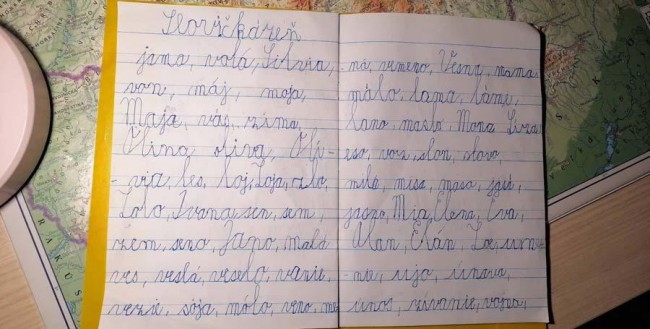 Slovíčkáreň
jama, volá, Silvia,
von, máj, moja,
Maja, váš, zima,
Olina, oliva, Olí-
via, les, loj, Loja, zlo,
Lolo, Ivana, sen, sem,
zem, seno, Jano, malá
ves, veslá, veselo, varie,
verzie, sója, mólo, veno, me
no, vymeno, Vesna, mama,
málo, lama, láme,
lano, maslo, Mona Liza,
eso, voz, slon, slovo,
milá, misa, masa,
jaspo, Mia, Elena, Eva,
Alan, Elán, Zoe, um-
nie, ujo, únava,
únos, zívanie, vojna,